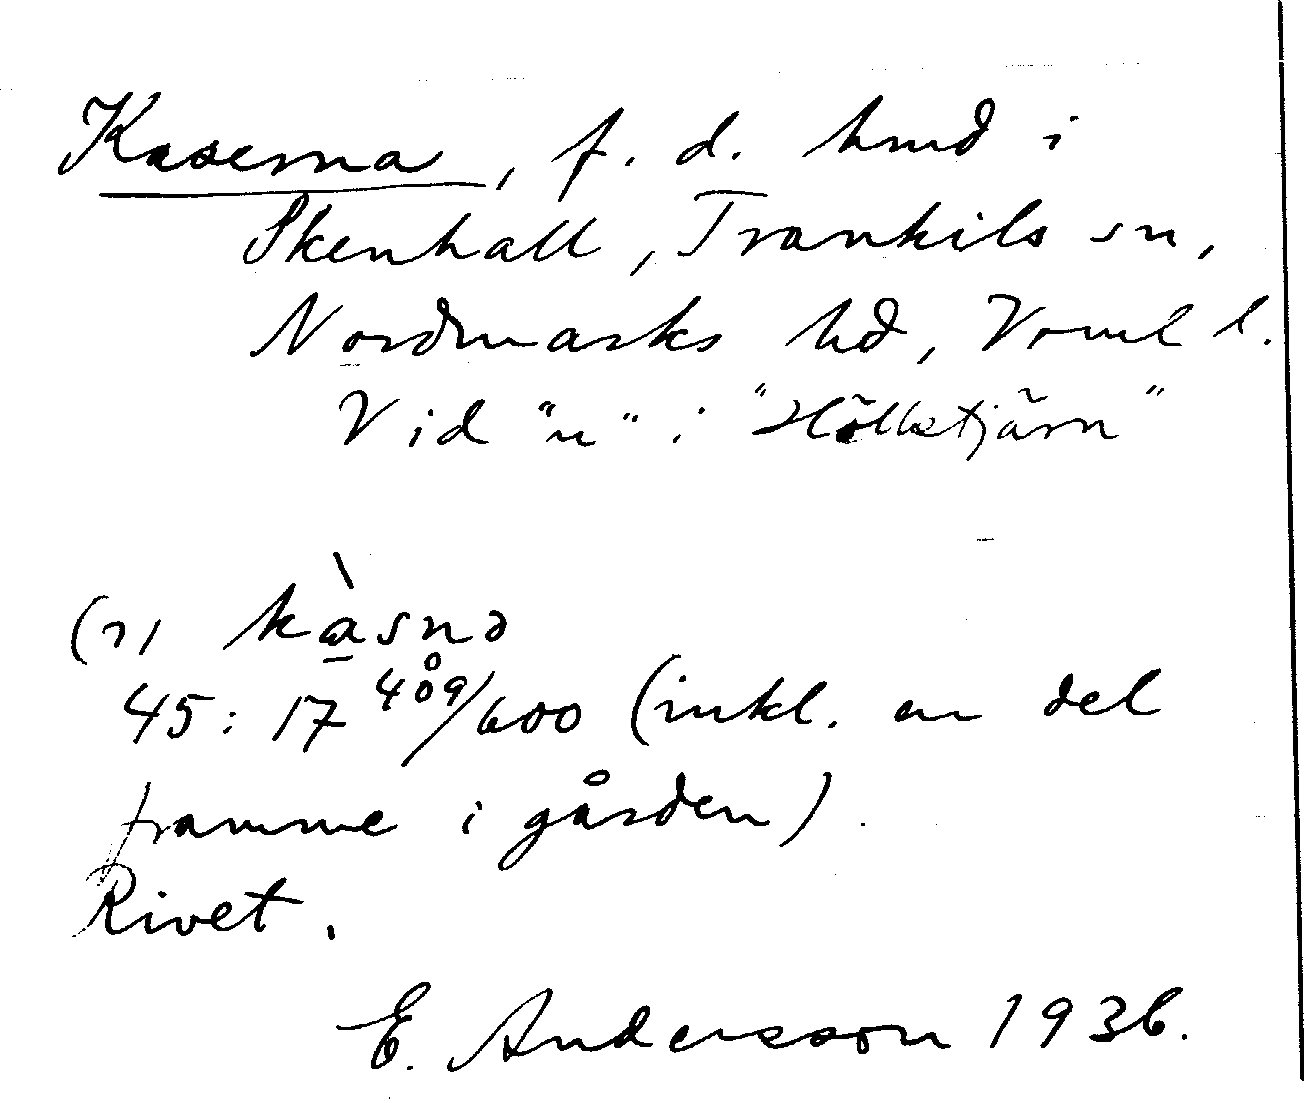 Kaserna, f. d. hmd i
Skenhall, Trankils sn,
Nordmarks hd, Vrml l.
Vid "n" i "Höllketjärn"
(1) kàsnə
45: 17 409/600 (inkl. en del
framme i gården)
Rivet.
E. Andersson 1936.